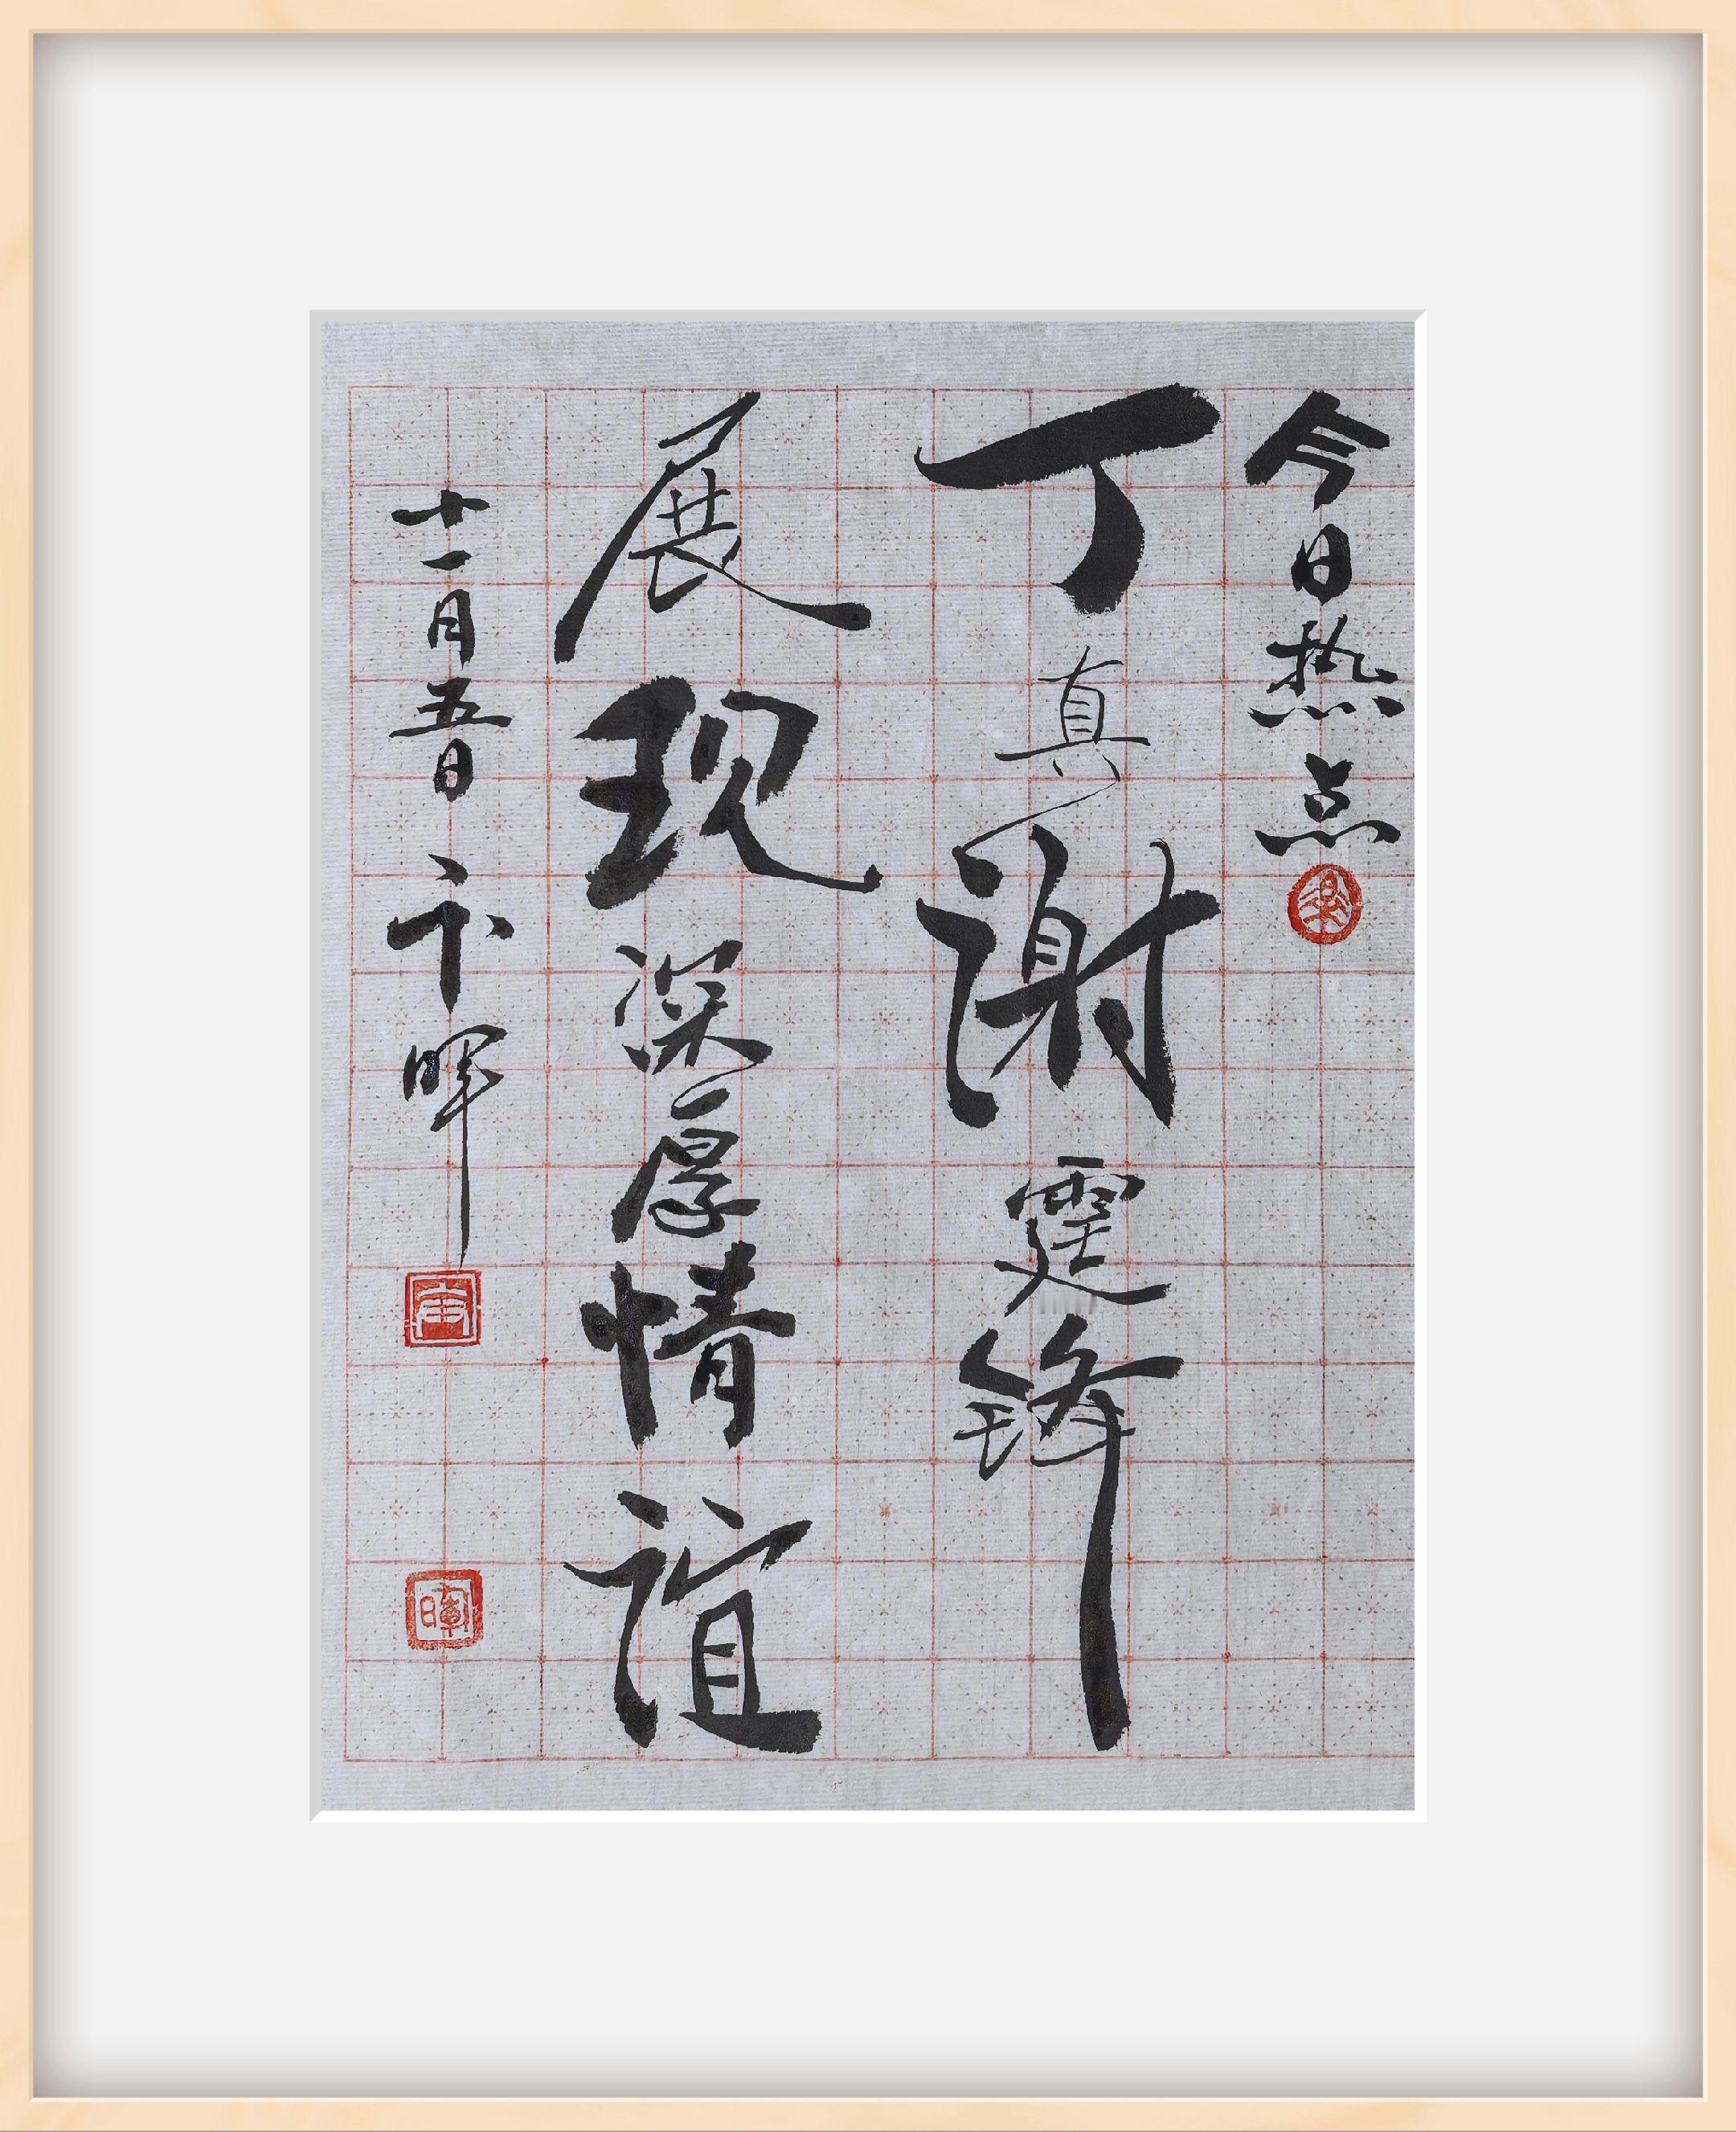 今日热点
丁真谢霆锋
展现深厚情谊
十一月五日 卞晖
晖